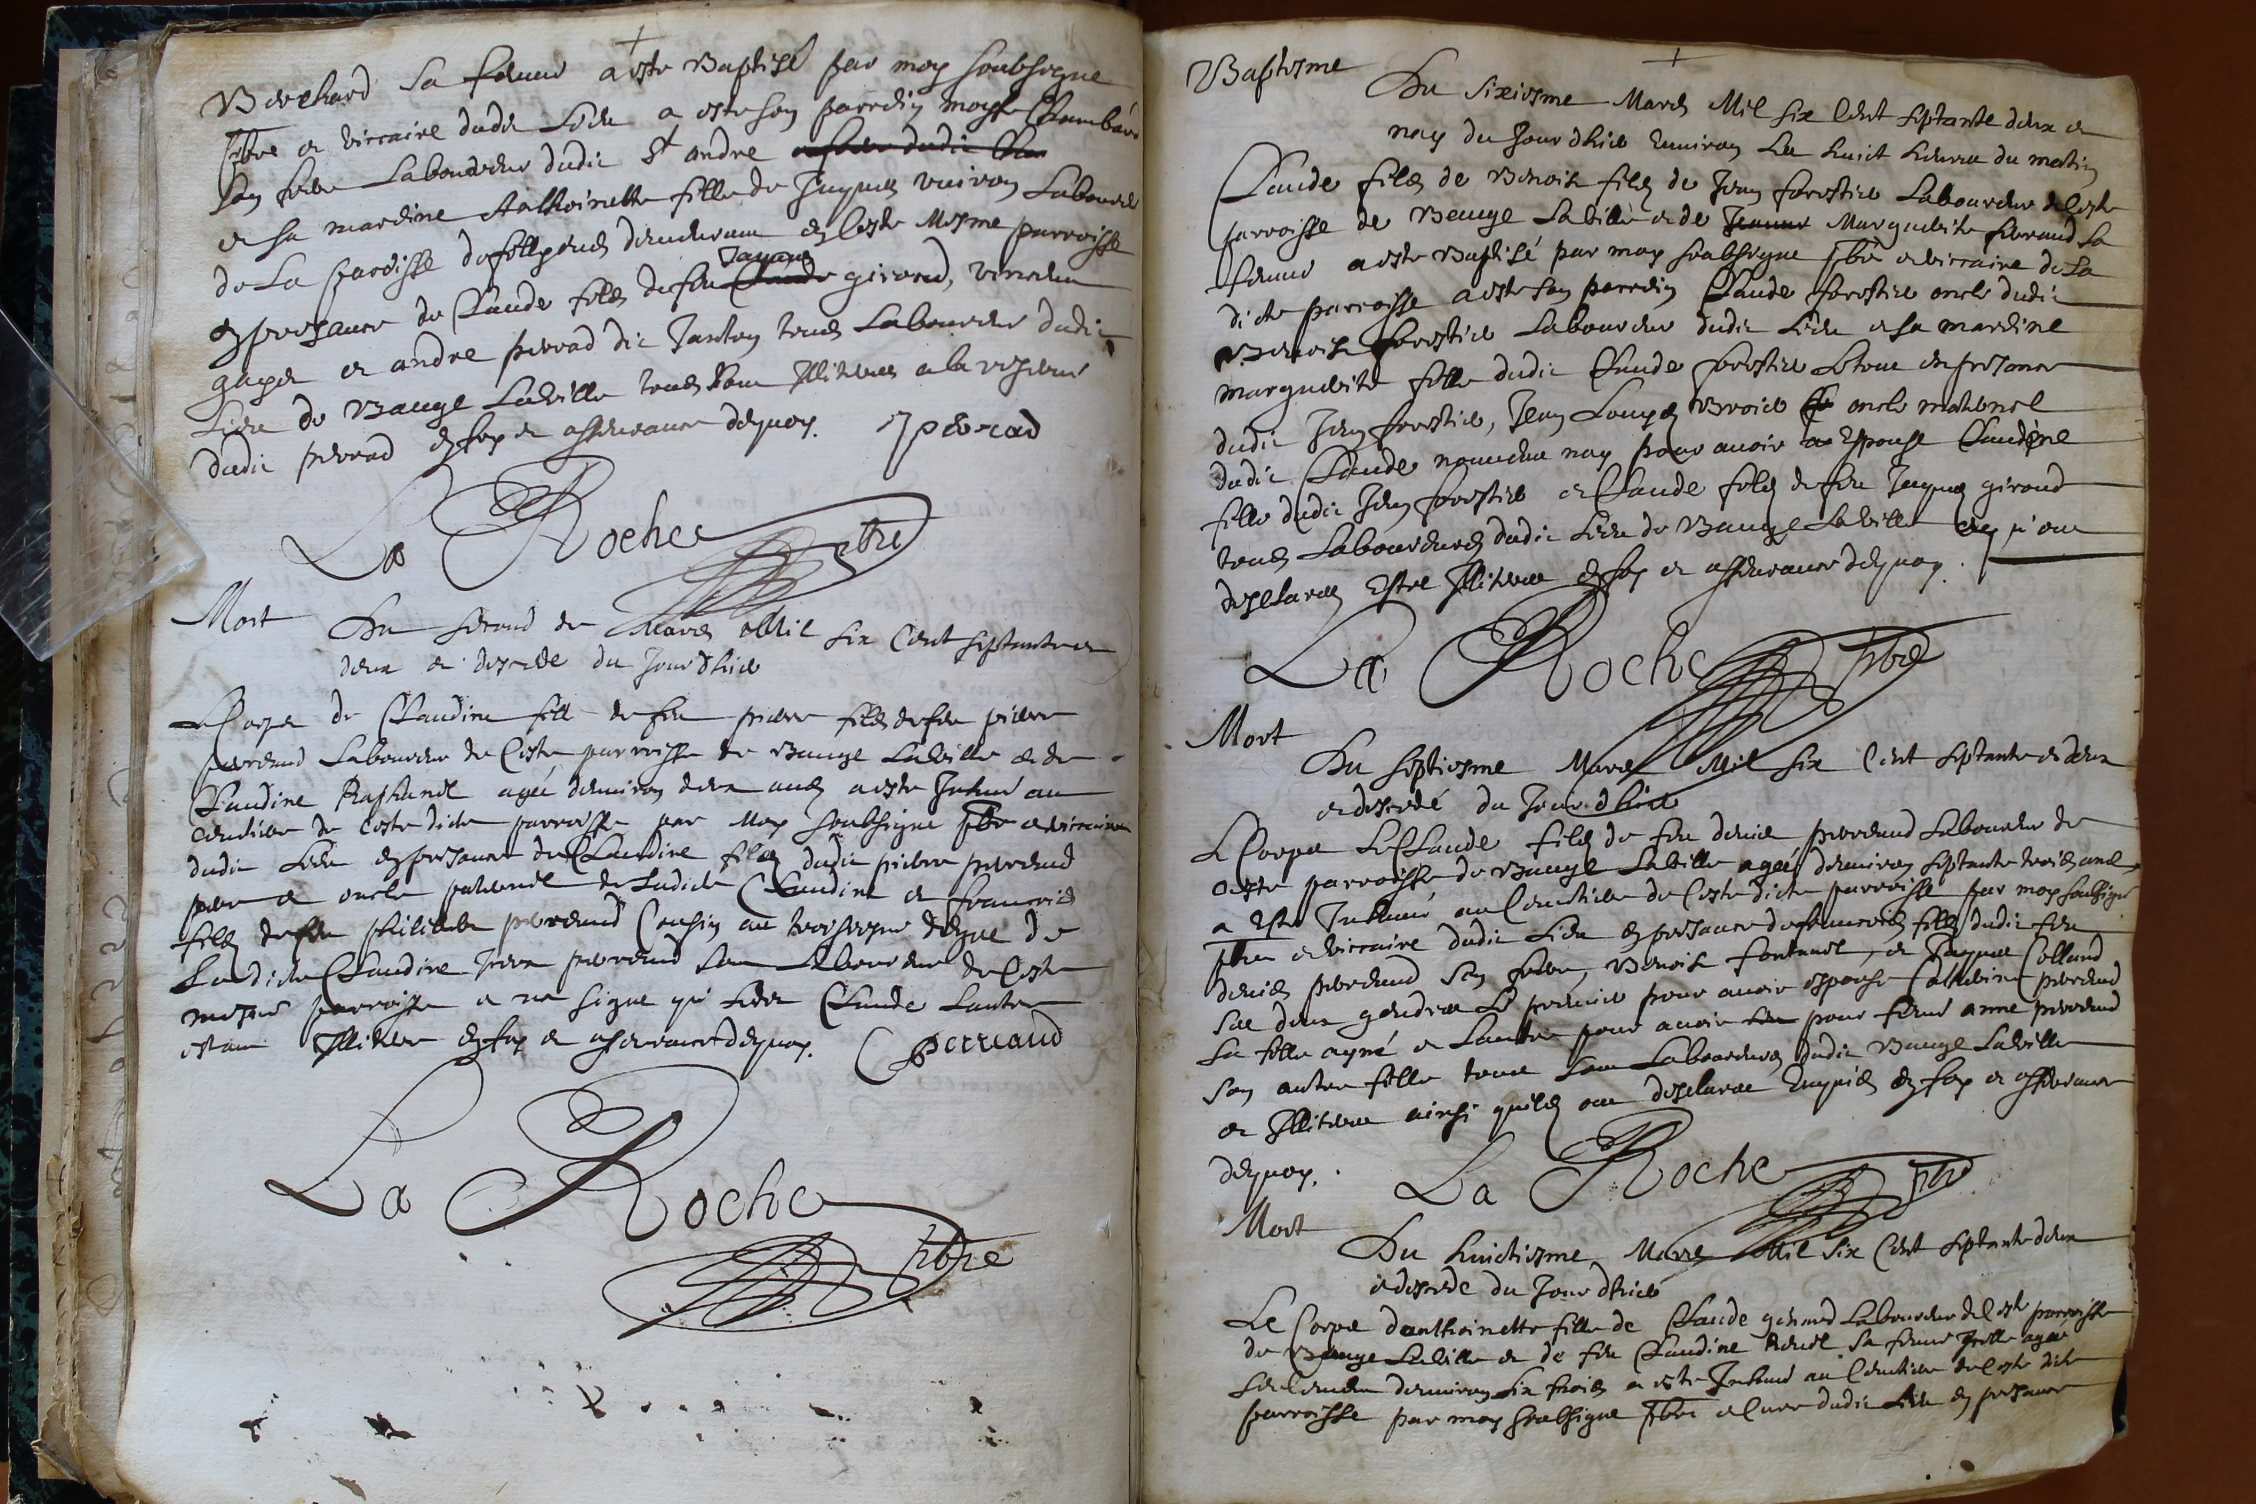 sa femme a este Baptisé par moy soubsigne
pbre et viccaire dudit Lieu a este son parrein moyse
son frere Laboureur dudit St andre
et sa mareine Anthoinette fille de Jaques
de La paroisse en ceste Mesme parroisse
Jaques
en presance de Claude filz de feu giroud,
et andre perrad dit tous Laboureur dudit
Lieu de Baugé Laville tous Illiteres a la reserve
dudit perrad en foy et assurance dequoy. perrad
La Roche pbre
Mort
Du segond de Mars Mil six Cent septante et
deux et decede du Jourdhier
Le Corps de Claudine fille de feu pierre filz de feu pierre
perreaud Laboureur de Ceste parroisse de Baugé Laville et de
Claudine agée denviron deux ans a este Inhumé au
cemitiere de ceste dicte parroisse par Moy soubsigne pbre et viccaire
dudit Lieu en presance de Claudine filz dudit pierre perreaud
pere et oncle paternel de Ladicte Claudine et francois
filz de feu philibert perreaud Cousin au troisiesme degre de
Ladicte Claudine perreaud Laboureur de Ceste
mesme parroisse et ne signe qui Ledit Claude Lautre
estant Illitere en foy et assurance dequoy. C perreaud
La Roche pbre
Baptesme
Du sixiesme Mars Mil six Cent septante deux et
nay du Jourdhier Environ Les huict heures du matin
Claude filz de Benoist filz de Jean forestier Laboureur de Ceste
parroisse de Bauge Laville et de Jeanne Marguerite feraud sa
femme a este Baptisé par moy soubsigne pbre et viccaire de La
dicte parroisse a este son parrein Claude forestier oncle dudit
Benoist forestier Laboureur dudit Lieu et sa mareine
marguerite fille dudit Claude forestier Le tout en presance
dudit Jean forestier, Jean Louys oncle maternel
dudit Claude nouveau nay pour avoir Espousé Claudine
fille dudit Jean forestier et Claude filz de feu Jaques giroud
tous Laboureurs dudit Lieu de Bauge Laville qui ont
desclarés Estre Illiteres en foy et assurance dequoy.
La Roche pbre
Mort
Du septiesme Mars Mil six Cent septante et deux
et decedé du Jourdhier
Le Corps de Claude filz de feu denis perreaud Laboureur de
ceste parroisse de Bauge Laville agée denviron septante trois ans
a Este Inhumé au Cemitiere de Ceste dicte parroisse par moy soubsigne
pbre et viccaire dudit Lieu en presance de francois filz dudit feu
denis perreaud son frere, Benoist et Jaques Colland
ses deux gendres Le premier pour avoir espousé Catherine perreaud
sa fille ayné et Lautre pour avoir pour feme anne perreaud
son autre fille tous Laboureurs dudit Bauge Laville
et Illiteres ainsi quilz ont desclaré Enquis en foy et assurance
dequoy.
La Roche pbre
Mort
Du huictiesme Mars Mil six Cent septante deux
et decede du Jourdhier
Le Corps danthoinette fille de Claude Laboureur de Ceste parroisse
de Bauge Laville et de feu Claudine sa feme Icelle agée
denviron six mois a este Inhumé au Cemitiere de Ceste dicte
parroisse par moy soubsigne pbre et Cure dudit Lieu en presance